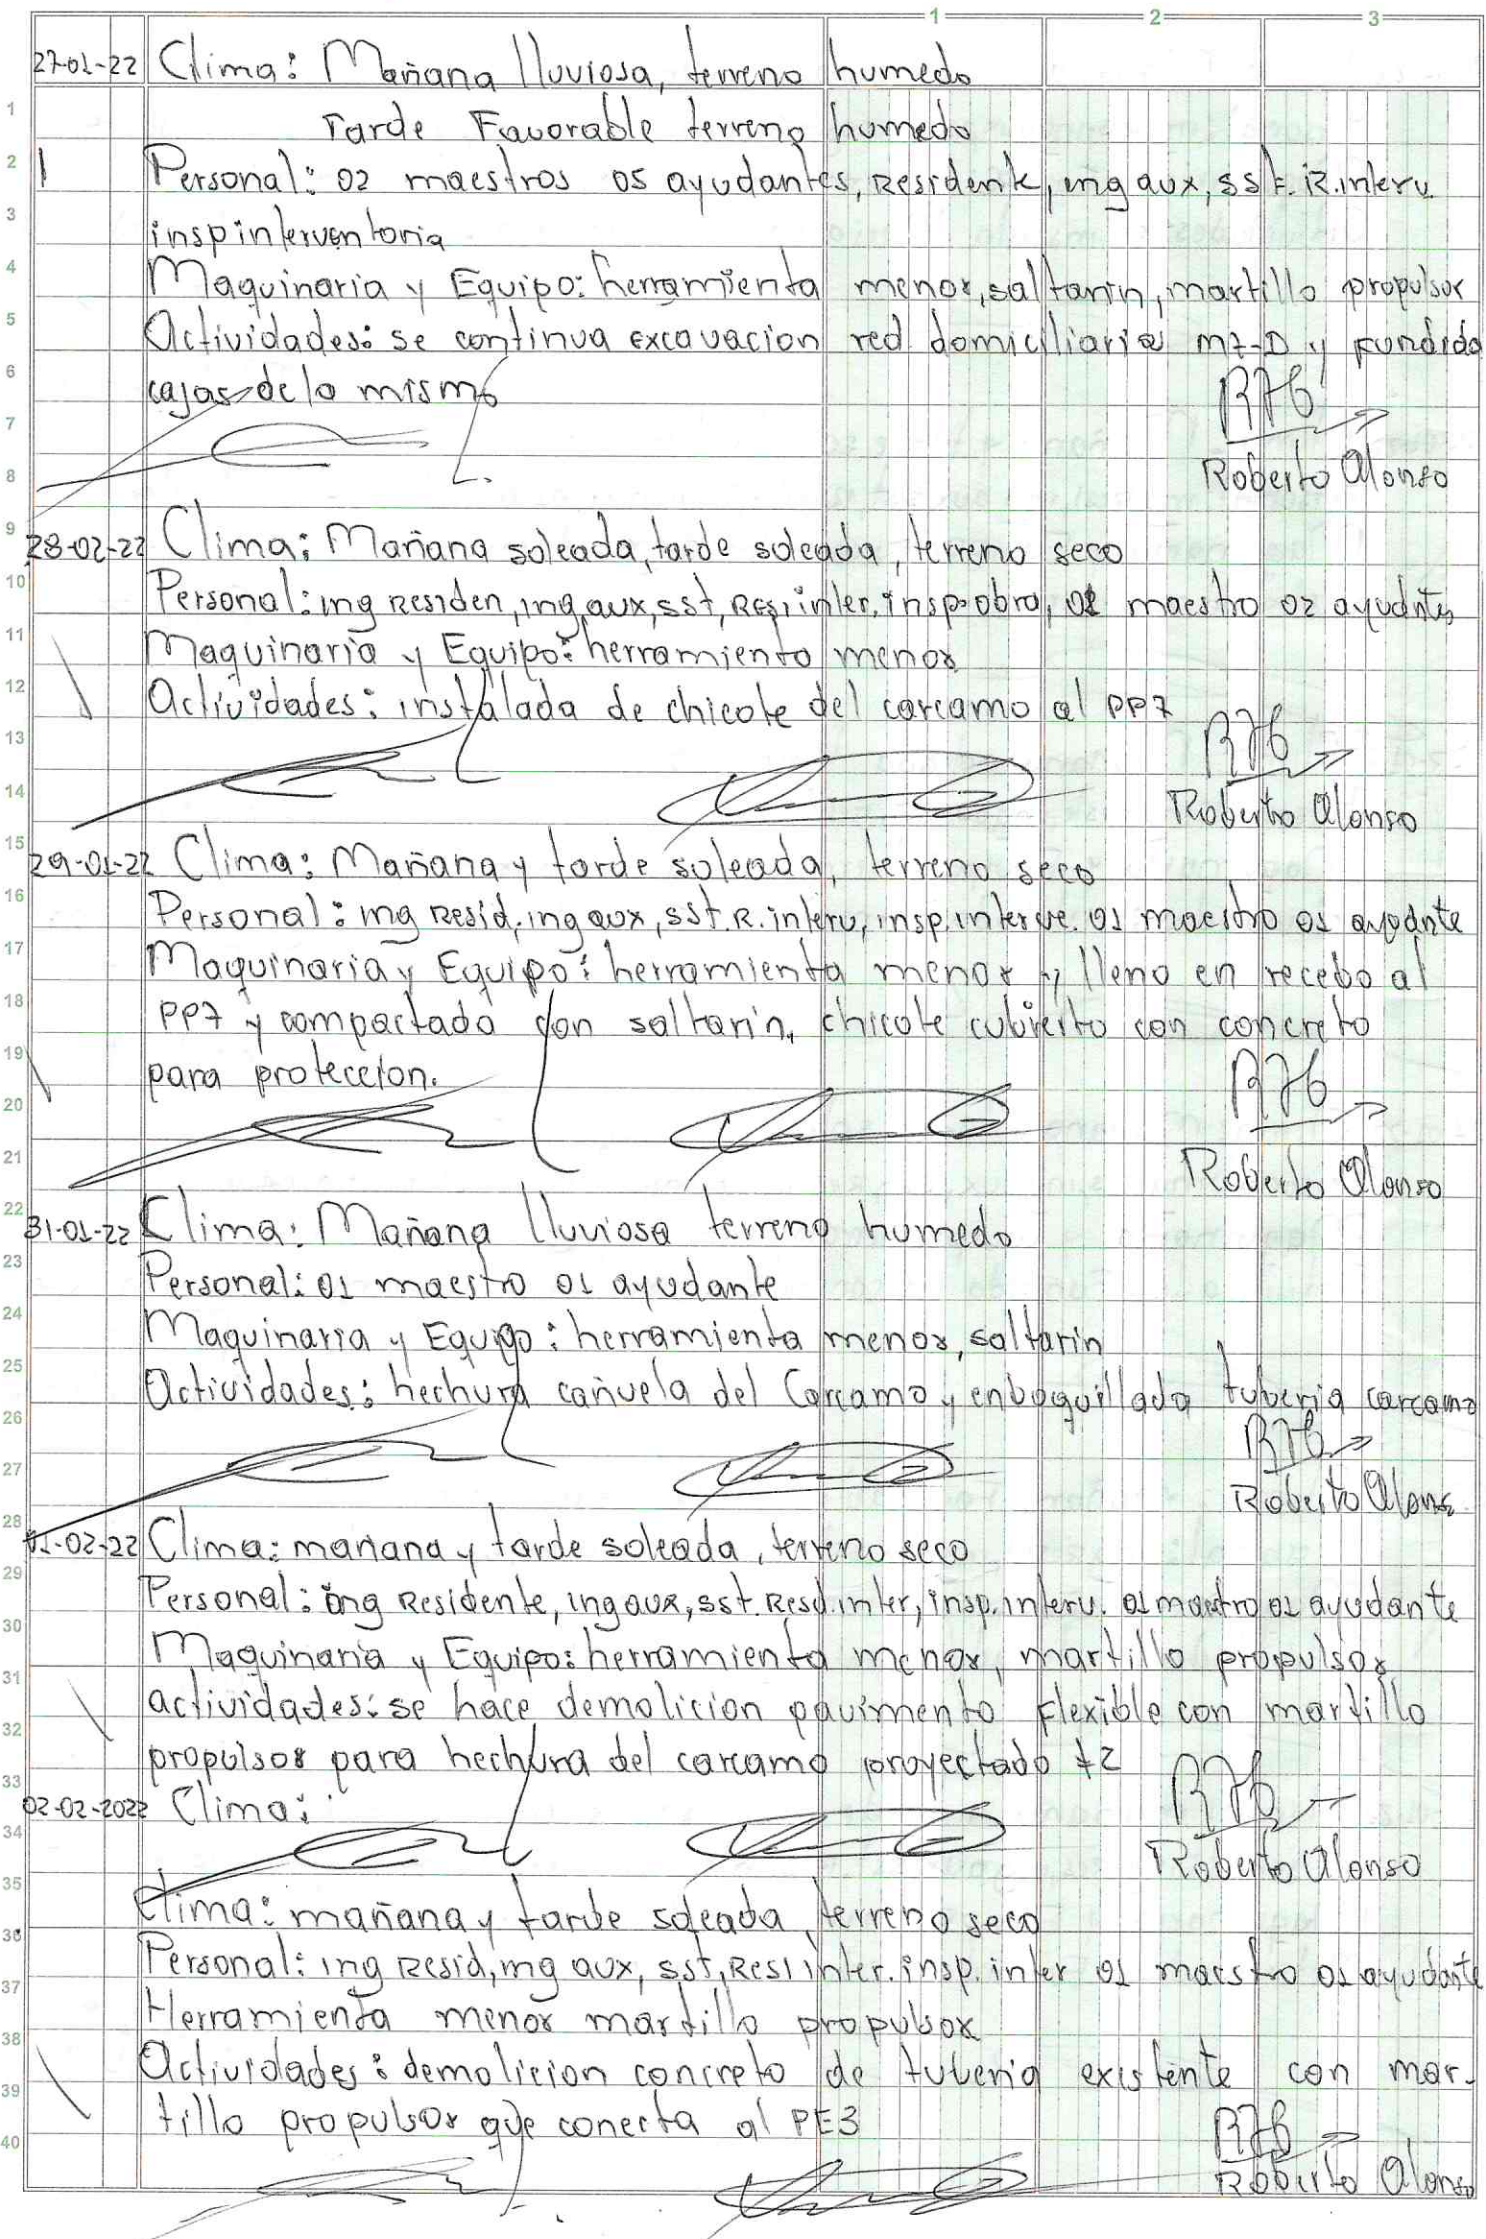 1 2 3
27-01-22 Clima: Mañana lluviosa, terreno humedo
1
Tarde Favorable terreno humedo
2 Personal: 02 maestros 05 ayudantes, Residente, ing aux, sst. R. interv
3 insp interventoria
4 Maquinaria y Equipo: herramienta menor, saltarin, martillo propulsor
5 Actividades: se continua excavacion red domiciliaria mz-D y fundida
6 cajas de la misma
7
Roberto Alonso
8
9
28-02-22 Clima: Mañana soleada, tarde soleada, terreno seco
10 Personal: ing Residen, ing, aux, sst, Resi inter. insp. obra, 01 maestro 02 ayudntes
11 Maquinaria y Equipo: herramienta menor
12 Actividades: instalada de chicote del carcamo al PP7
13
14 Roberto Alonso
15
29-01-22 Clima: Mañana y tarde soleada, terreno seco
16 Personal: ing Resid, ing aux, sst. R. interv, insp. interve. 01 maestro 01 ayudante
17 Maquinaria y Equipo: herramienta menor y lleno en recebo al
18 PP7 y compactado con saltarin, chicote cubierto con concreto
19 para proteccion.
20
21 Roberto Alonso
22
31-01-22 Clima: Mañana lluviosa terreno humedo
23 Personal: 01 maestro 01 ayudante
24 Maquinaria y Equipo: herramienta menor, saltarin
25 Actividades: hechura cañuela del Carcamo y enboquillada tuberia carcamo
26
27 Roberto Alonso
28
01-02-22 Clima: mañana y tarde soleada, terreno seco
29 Personal: ing Residente, ing aux, sst. Resd. inter, insp. interv. 01 maestro 01 ayudante
30 Maquinaria y Equipo: herramienta menor, martillo propulsor
31 actividades: se hace demolicion pavimento flexible con martillo
32 propulsor para hechura del carcamo proyectado #2
33
02-02-2022 Clima:
34 Roberto Alonso
35
Clima: mañana y tarde soleada, terreno seco
36 Personal: ing Resid, ing aux, sst, Resi inter. insp. inter 01 maestro 01 ayudante
37 Herramienta menor martillo propulsor
38 Actividades: demolicion concreto de tuberia existente con mar-
39 tillo propulsor que conecta al PE3
40
Roberto Alonso